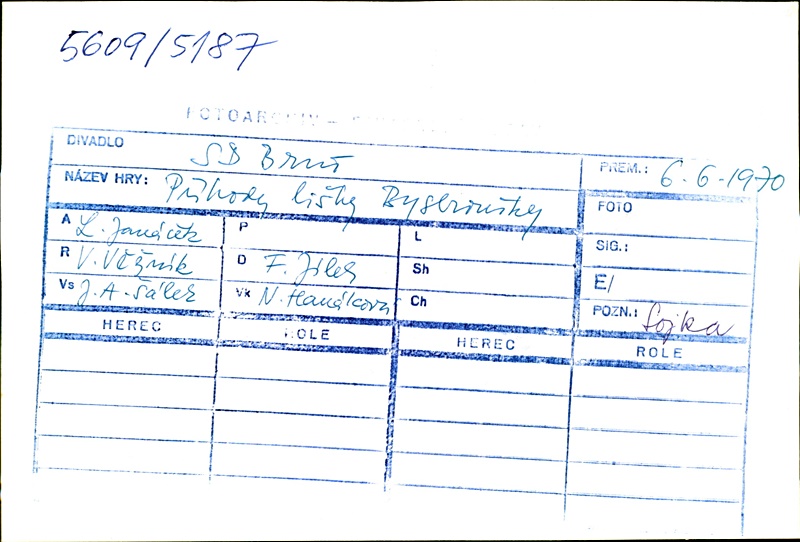 5609/5187
FOTOARCHIV
DIVADLO SD Brně PREM.: 6-6-1970
NÁZEV HRY: Příhody lišky Bystroušky FOTO
A L. Janáček P L SIG.:
R V. Věžník D F. Jílek Sh E/
Vs J. A. Šálek Vk N. Hanáková Ch POZN.: Sojka
HEREC ROLE HEREC ROLE